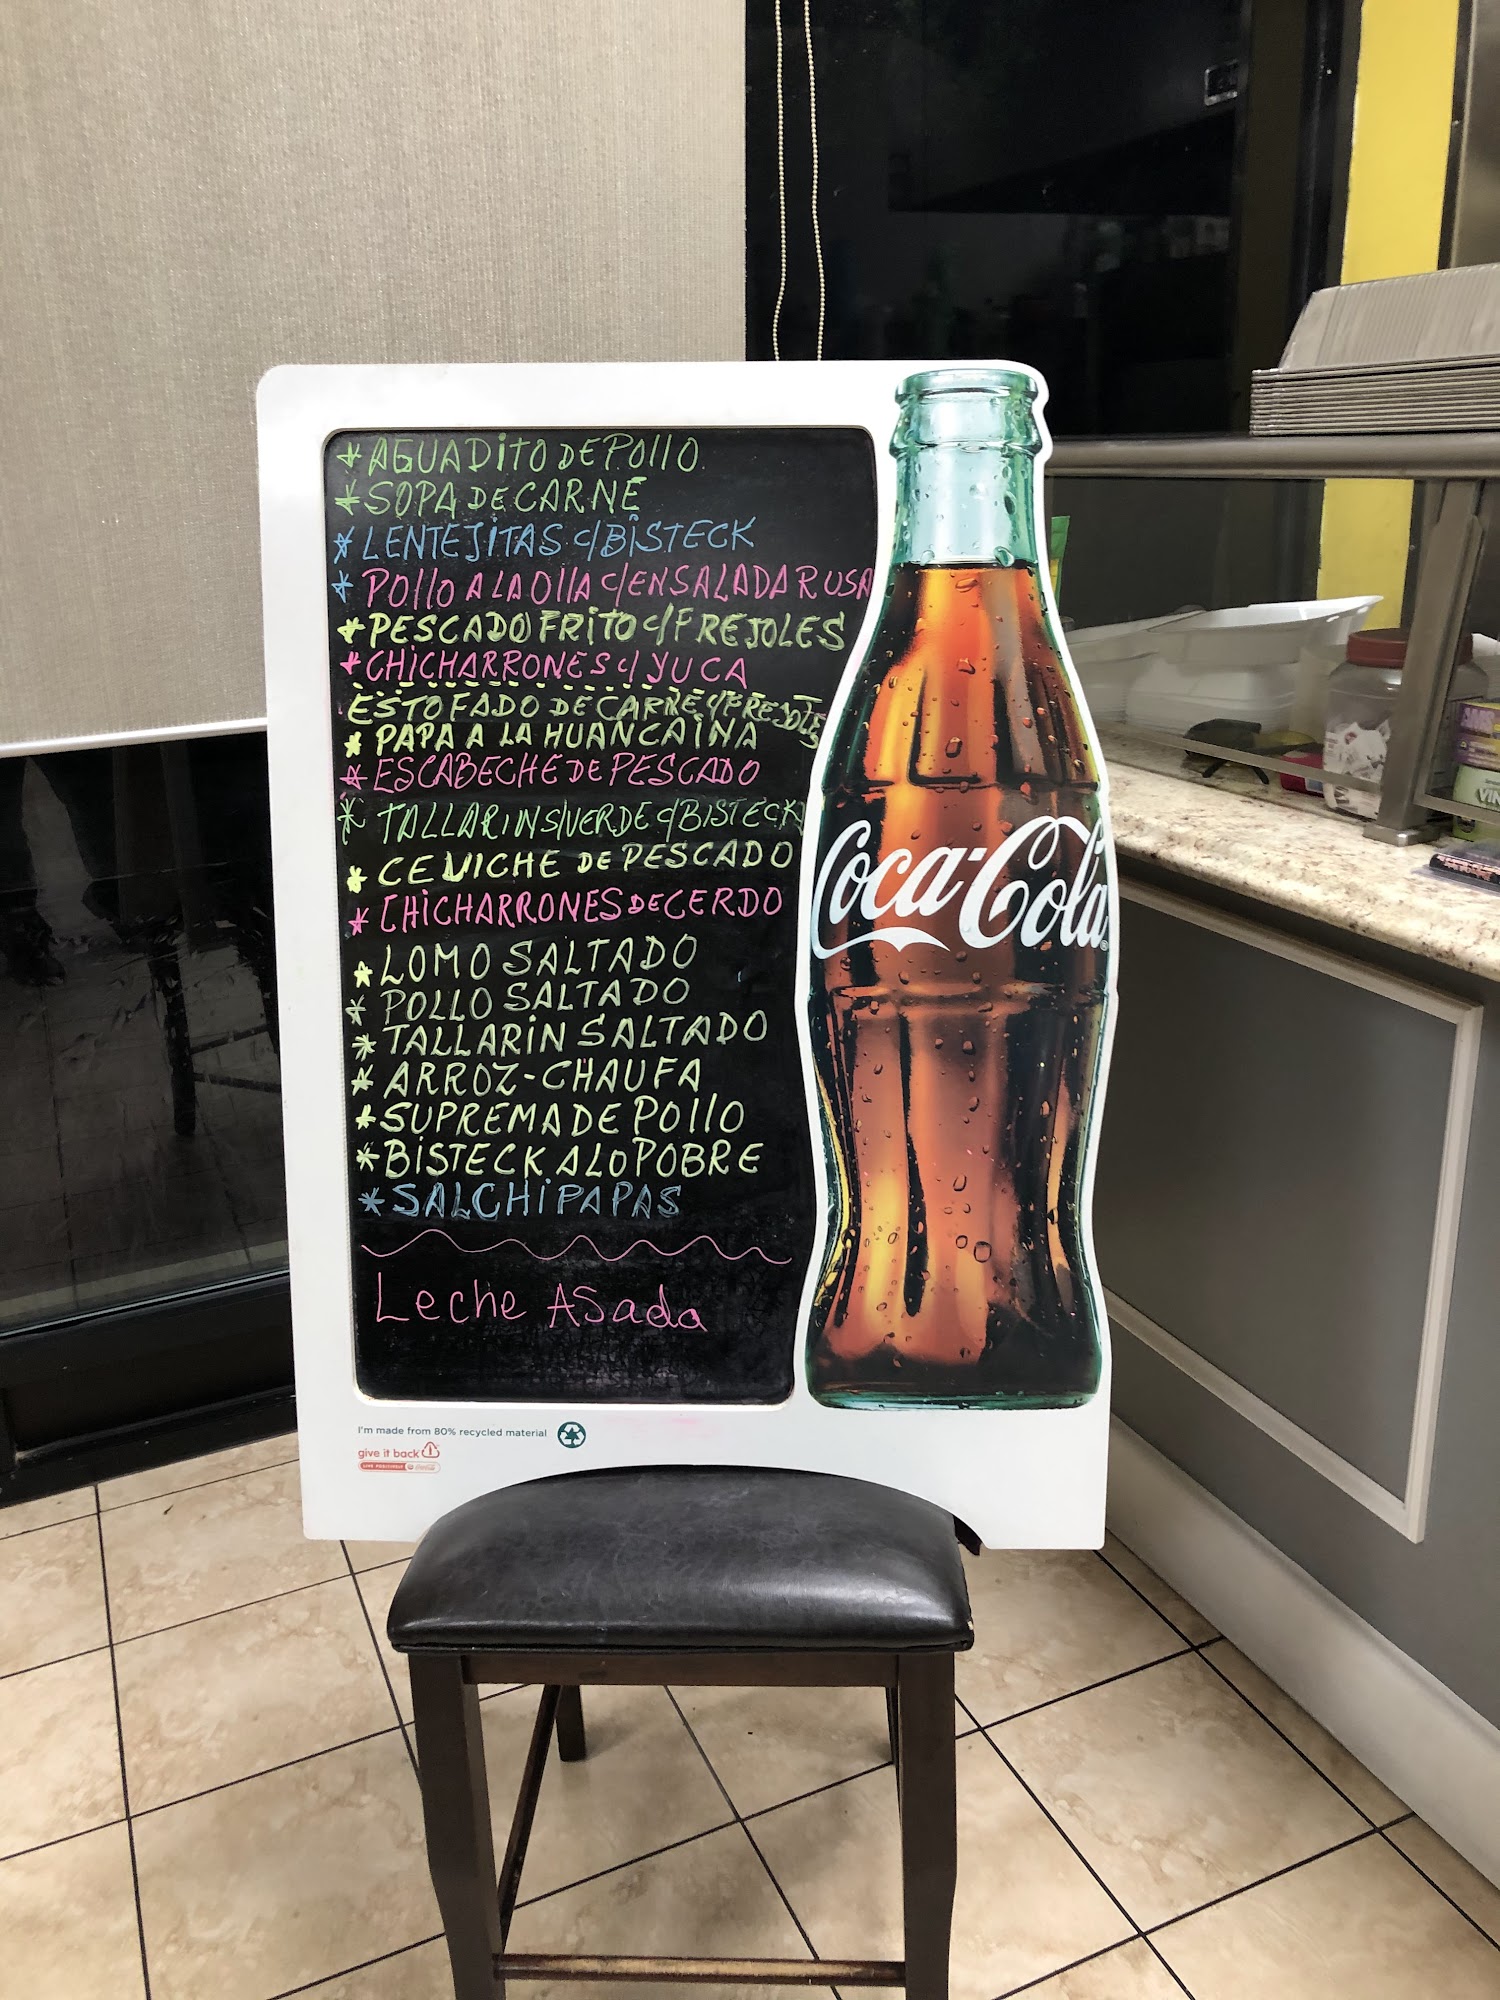 * AGUADITO DE POllO
* SOPA DE CARNE
* LENTEJITAS c/BISTECK
* POllO A LA OllA c/ENSALADA RUSA
* PESCADO FRITO c/FREJOLES
* CHICHARRONES c/ YUCA
ESTOFADO DE CARNE c/FREJOLES
* PAPA A LA HUANCAINA
* ESCABECHE DE PESCADO
* TALLARINS/VERDE c/BISTECK
* CEVICHE DE PESCADO
* CHICHARRONES DE CERDO
* LOMO SALTADO
* POLLO SALTADO
* TALLARIN SALTADO
* ARROZ-CHAUFA
* SUPREMA DE POllO
* BISTECK A LO POBRE
* SALCHIPAPAS
Leche ASada
Coca-Cola
I'm made from 80% recycled material
give it back
LIVE POSITIVELY